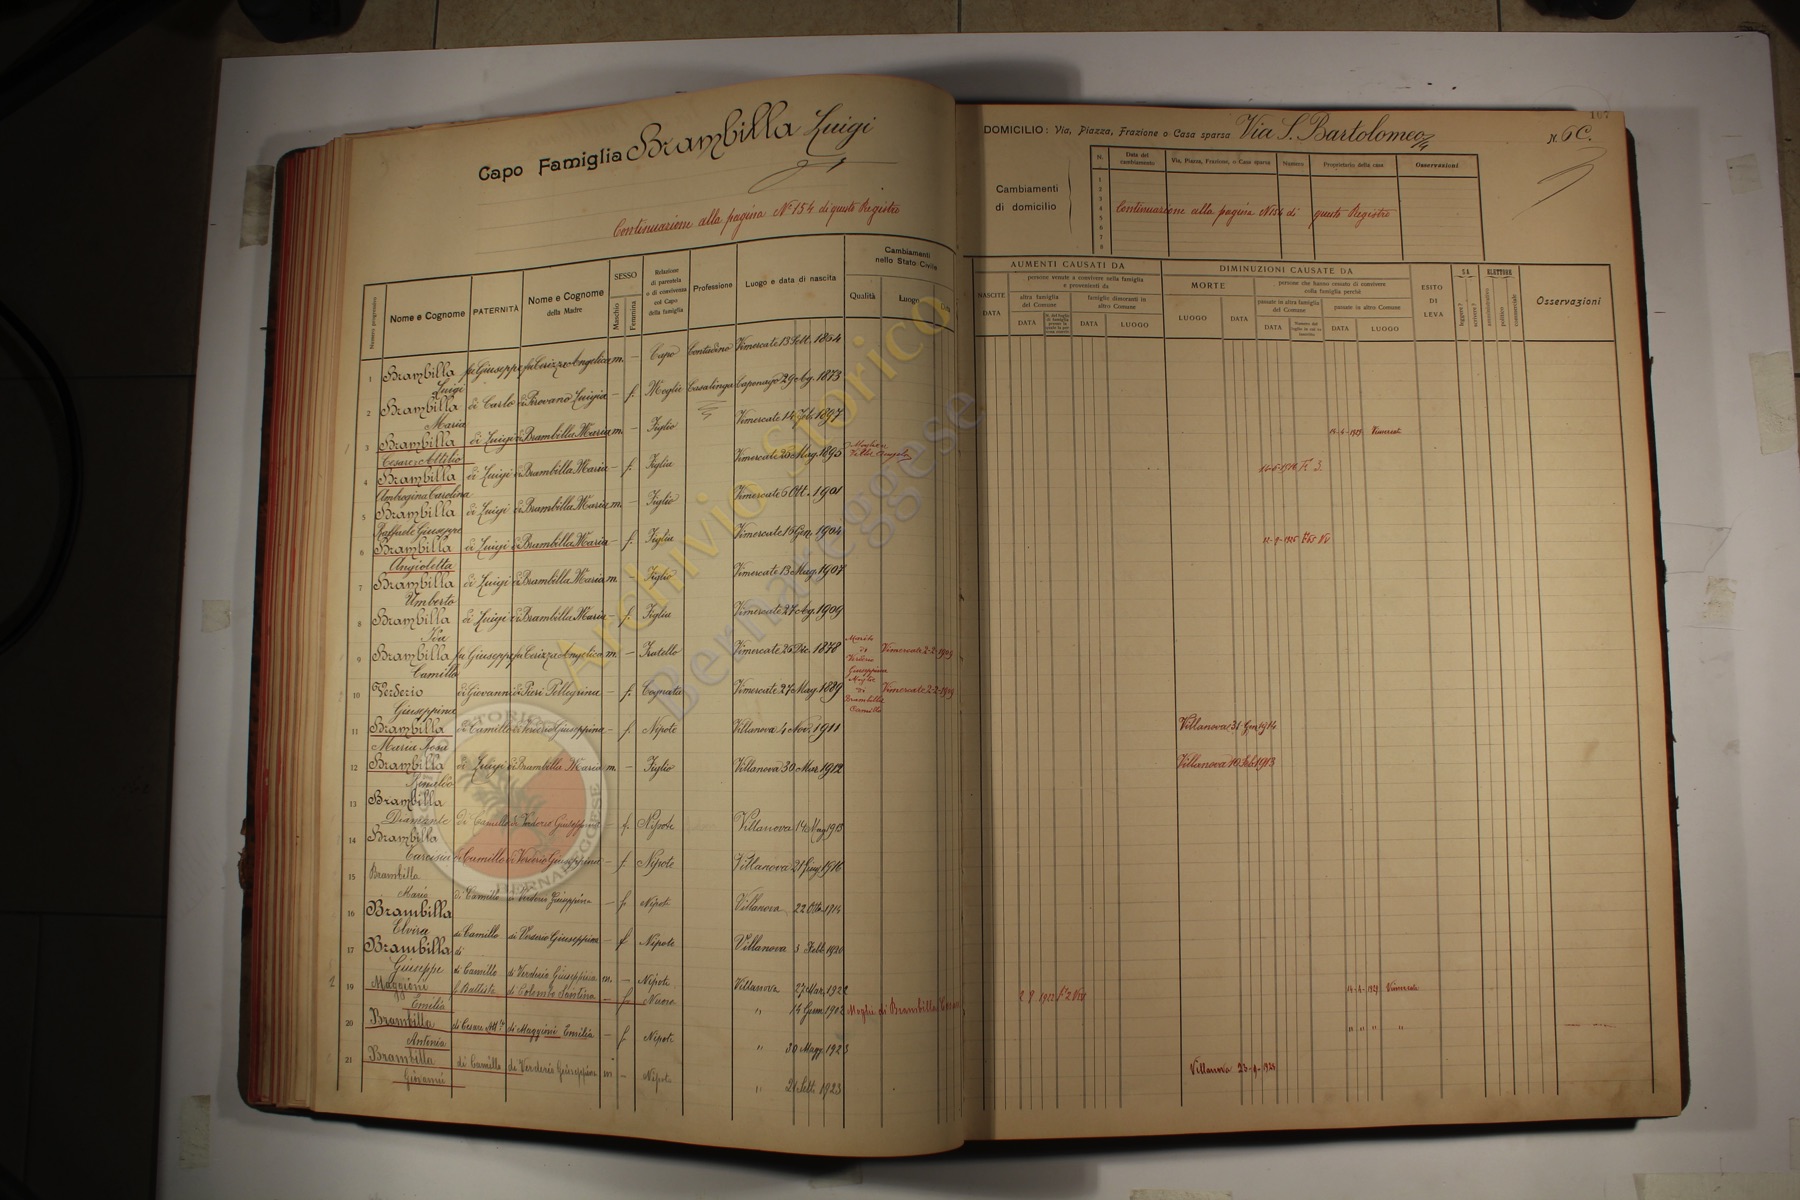 Capo Famiglia Brambilla Luigi
Continuazione alla pagina N° 154 di questo Registro
Numero progressivo
Nome e Cognome
PATERNITÀ
Nome e Cognome della Madre
SESSO
Maschio
Femmina
Relazione di parentela o di convivenza col Capo della famiglia
Professione
Luogo e data di nascita
Cambiamenti nello Stato Civile
Qualità
Luogo
1 Brambilla Luigi fu Giuseppe fu Cerizza Angelica m. – Capo Contadino Vimercate 13 Sett. 1864
2 Brambilla Maria di Carlo di Perovano Luigia – f. Moglie Casalinga Caponago 29 Ag. 1873
3 Brambilla Cesare Attilio di Luigi di Brambilla Maria m. – Figlio Vimercate 14 Feb. 1897
4 Brambilla Ambrogina Carolina di Luigi di Brambilla Maria – f. Figlia Vimercate 20 Mag. 1895
5 Brambilla Raffaele Giuseppe di Luigi di Brambilla Maria m. – Figlio Vimercate 6 Ott. 1901
6 Brambilla Angioletta di Luigi di Brambilla Maria – f. Figlia Vimercate 15 Gen. 1904
7 Brambilla Umberto di Luigi di Brambilla Maria m. – Figlio Vimercate 13 Mag. 1907
8 Brambilla Ida di Luigi di Brambilla Maria – f. Figlia Vimercate 27 Ag. 1909
9 Brambilla Camillo fu Giuseppe fu Cerizza Angelica m. – Fratello Vimercate 26 Dic. 1878 Marito di Verderio Giuseppina Vimercate 2-2-1909
10 Verderio Giuseppina di Giovanni di Pieri Pellegrina – f. Cognata Vimercate 27 Mag. 1889 Moglie di Brambilla Camillo Vimercate 2-2-1909
11 Brambilla Maria Rosa di Camillo di Verderio Giuseppina – f. Nipote Villanova 4 Nov. 1911
12 Brambilla Romildo di Luigi di Brambilla Maria m. – Figlio Villanova 30 Mar. 1912
13 Brambilla Diamante di Camillo di Verderio Giuseppina – f. Nipote Villanova 14 Mag 1913
14 Brambilla Tarcisia di Camillo di Verderio Giuseppina – f. Nipote Villanova 21 Giug 1916
15 Brambilla Maria di Camillo di Verderio Giuseppina – f. Nipote Villanova 22 Ott. 1914
16 Brambilla Elvira di Camillo di Verderio Giuseppina – f Nipote Villanova 3 Febb. 1920
17 Brambilla Giuseppe di Camillo di Verderio Giuseppina m. – Nipote Villanova 27 Mar. 1922
19 Maggioni Emilia fu Battista di Colombo Santina – f Nuora " 14 Genn 1902 Moglie di Brambilla
20 Brambilla Antonia di Cesare Att. di Maggioni Emilia – f. Nipote " 30 Magg. 1923
21 Brambilla Giovanni di Camillo di Verderio Giuseppina m – Nipote " 21 Sett. 1923
107
DOMICILIO: Via, Piazza, Frazione o Casa sparsa Via S. Bartolomeo N. 6C.
Cambiamenti di domicilio
N.
Data del cambiamento
Via, Piazza, Frazione, o Casa sparsa
Numero
Proprietario della casa
Osservazioni
1
2
3
4
5
6
7
8
Continuazione alla pagina N 154 di questo Registro
AUMENTI CAUSATI DA
NASCITE
DATA
persone venute a convivere nella famiglia e provenienti da
altra famiglia del Comune
DATA
famiglie dimoranti in altro Comune
DATA
LUOGO
DIMINUZIONI CAUSATE DA
MORTE
LUOGO
DATA
persone che hanno cessato di convivere colla famiglia perchè
passate in altra famiglia del Comune
DATA
passate in altro Comune
DATA
LUOGO
ESITO DI LEVA
SA
leggere?
scrivere?
ELETTORE
amministrativo
politico
commerciale
Osservazioni
14-4-1929 Vimercate
Villanova 31 Gen 1914
Villanova 19 Feb 1913
14-4-1929 Vimercate
" " " "
Villanova
Archivio Storico
Bernareggese